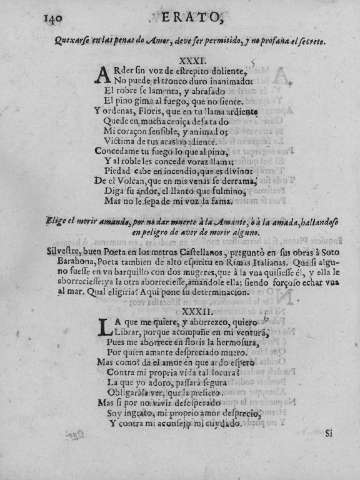 140 ERATO,
Quexarse en las penas de Amor, deve ser permitido, y no profana el secreto.
XXXI.
ARder sin voz de estrepito doliente,
No puede el tronco duro inanimado:
El robre se lamenta, y abrasado
El pino gima al fuego, que no siente.
Y ordenas, Floris, que en tu llama ardiente
Quede en mucha ceniça desatado
Mi coraçon sensible, y animado;
Victima de tus aras obediente.
Concedame tu fuego lo que al pino,
Y al roble les concede voraz llama:
Piedad cabe en incendio, que es divino:
De el Volcan, que en mis venas se derrama,
Diga su ardor, el llanto que fulmino,
Mas no le sepa de mi voz la fama.
Elige el morir amando, por no dar muerte à la Amante, ò à la amada, hallandose
en peligro de aver de morir alguno.
Silvestre, buen Poeta en los metros Castellanos, preguntò en sus obras à Soto
Barahona, Poeta tambien de alto espiritu en Rimas Italianas. Que si algu-
no fuesse en un barquillo con dos mugeres, que à la una quisiesse èl, y ella le
aborreciesse: y a la otra aborreciesse, amandole ella; siendo forçoso echar una
al mar. Qual eligiria? Aqui pone su determinacion.
XXXII.
LA que me quiere, y aborrezco, quiero
Librar, porque acompañe en mi ventura,
Pues me aborrece en floris la hermosura,
Por quien amante despreciado muero.
Mas como? da el amor en que ardo espero
Contra mi propria vida tal locura?
La que yo adoro, passarà segura
Obligaràse ver, que la prefiero.
Mas si por no vivir desesperado
Soy ingrato, mi proprio amor desprecio,
Y contra mi aconsejo mi cuydado.
Si